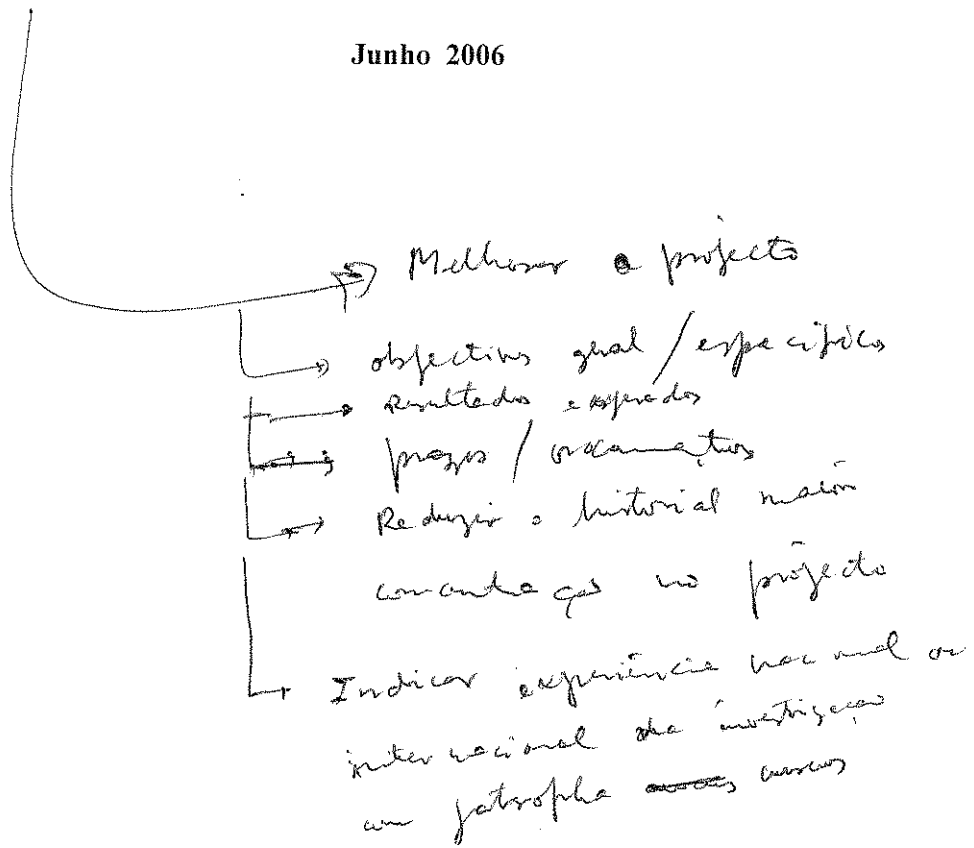 Junho 2006
Melhorar o projecto
objectivos geral / específicos
Resultados esperados
prazos / orçamentos
Reduzir o historial maior
concentração no projecto
Indicar experiência nacional ou
internacional da investigação
com jatropha curcas